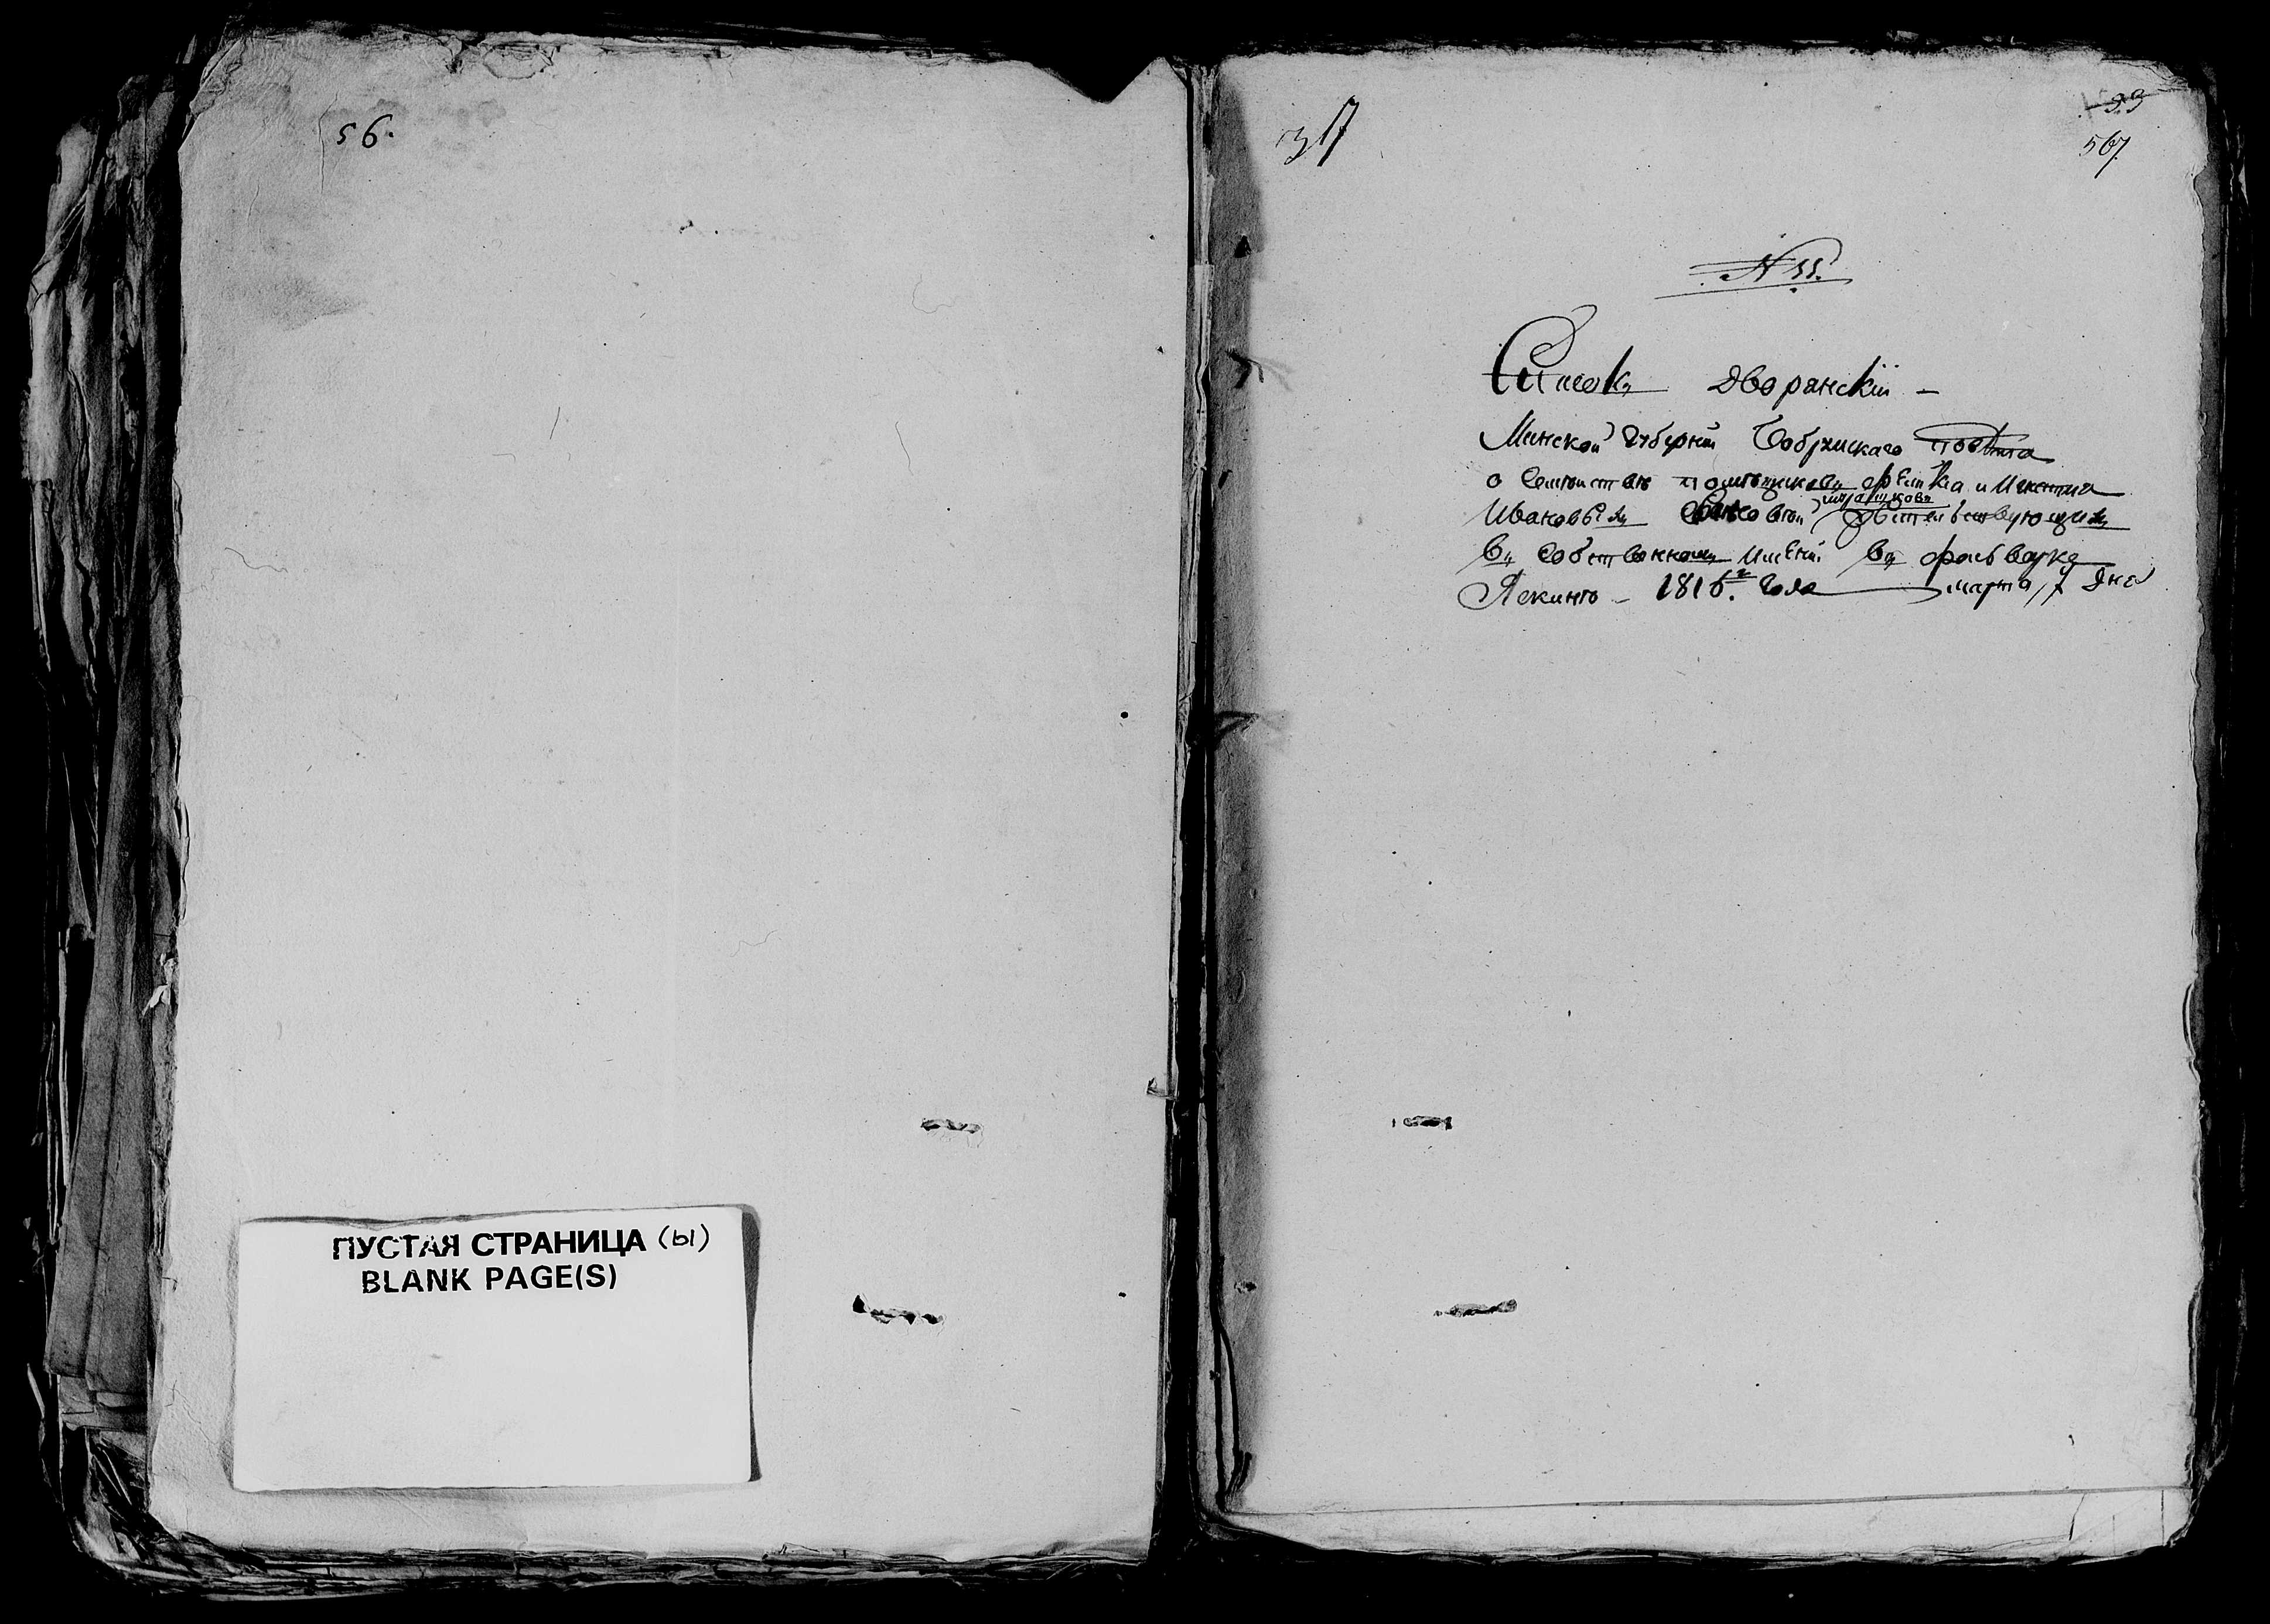 56.
ПУСТАЯ СТРАНИЦА (ы)
BLANK PAGE(S)
37
33
567.
N 55.
Списокъ Дворянскій —
Минской Губерніи Бобруискаго повѣта
о Семѣиствѣ помѣщиковъ и
Ивановыхъ жителствующихъ
въ Собственномъ имѣніи въ фольварке
— 1816.г Года марта 7 дня